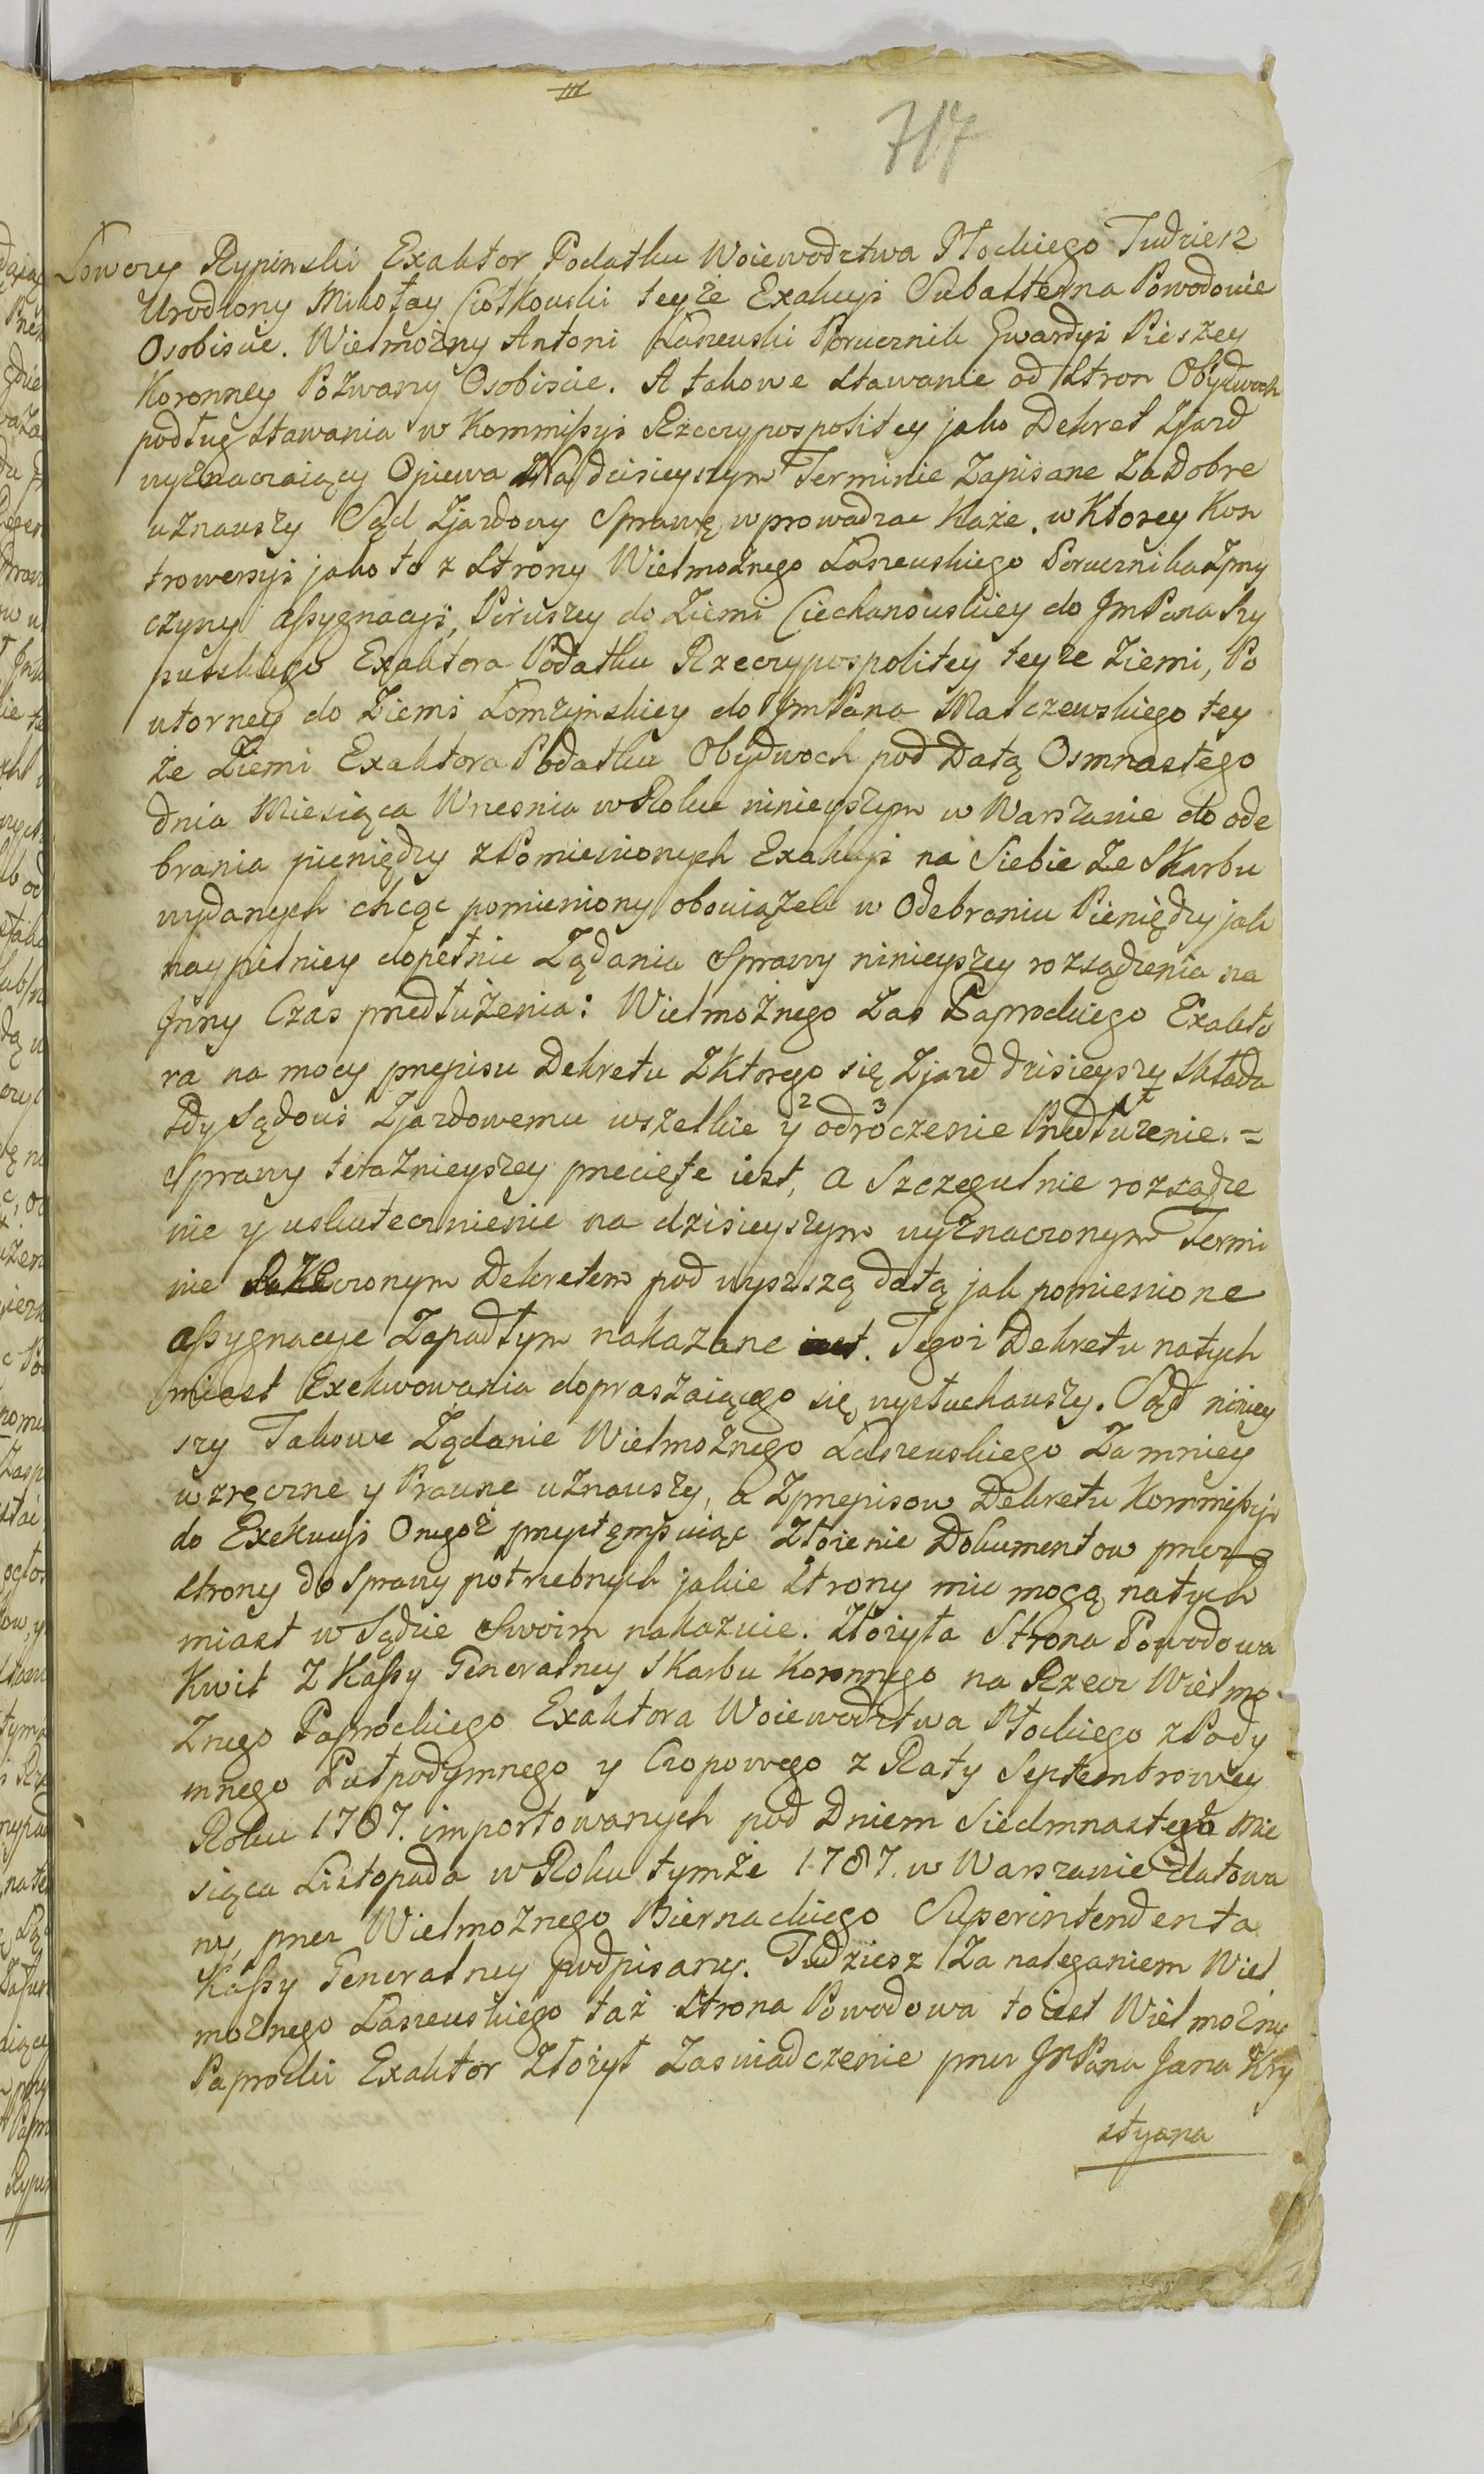 III
717
Łowczy Rypinski Exaktor Podatku Woiewodztwa Płockiego Tudziesz
Urodzony Mikołay Ciołkowski teyże Exakcyi Subalterna Powodowie
Osobiscie. Wielmożny Antoni Laszewski Porucznik Gwardyi Pieszey
Koronney Pozwany Osobiscie. A takowe stawanie od stron Obydwoch
podług stawania w Kommissyi Rzeczypospolitey jako Dekret Zjazd
wyznaczaiący Opiewa Na dzisieyszym Terminie Zapisane za Dobre
uznawszy Sąd Zjazdowy Sprawę wprowadzac Każe. w Ktorey Kon
trowersyi jako to z Strony Wielmożnego Laszewskiego Porucznika z Przy
czyny Assygnacyi, Pierwszey do Ziemi Ciechanowskiey do JmPana
Exaktora Podatku Rzeczypospolitey teyże Ziemi, Po
wtorney do Ziemi Lomzynskiey do JmPana Malczewskiego tey
że Ziemi Exaktora Podatku Obydwoch pod Datą Osmnastego
dnia Miesiąca Wrzesnia w Roku ninieyszym w Warszawie do ode
brania pieniędzy z Pomienionych Exakcyi na Siebie ze Skarbu
wydanych chcąc pomieniony obowiązek w Odebraniu Pieniędzy jak
naypilniey dopełnic Ządania Sprawy ninieyszey rozsądzenia na
Jnny Czas przedłużenia: Wielmożnego zas Paprockiego Exakto
ra na mocy przepisu Dekretu z Ktorego się Zjazd dzisieyszy składa
gdy Sądowi Zjazdowemu wszelkie 2 y 3 odroczenie 1 Przedłużenie. =
Sprawy teraznieyszey przecięte iest, a Szczegulnie rozsądze
nie y uskutecznienie na dzisieyszym wyznaczonym Termi
nie Dekretem pod wyższą datą jak pomienione
Assygnacye Zapadłym nakazane iest. Tegoż Dekretu natych
miast Exekwowania dopraszaiącego się wysłuchawszy. Sąd niniey
szy Takowe Ządanie Wielmożnego Laszewskiego Za mniey
wzręczne y Prawne uznawszy, a z przepisow Dekretu Kommissyi
do Exekucyi Onegoż przystępuiąc złożenie Dokumentow przez
strony do sprawy potrzebnych jakie strony miec mogą natych
miast w Sądzie swoim nakazuie. Złożyła Strona Powodowa
Kwit z Kassy Generalney Skarbu Koronnego na Rzecz Wielmo
żnego Paprockiego Exaktora Woiewodztwa Płockiego z Pody
mnego Pułpodymnego y Czopowego z Raty Septembrowey
Roku 1787. importowanych pod Dniem Siedmnastego Mie
siąca Listopada w Roku tymże 1787. w Warszawie datowa
ny, przez Wielmożnego Biernackiego Superintendenta
Kassy Generalney podpisany. Tudziesz Za naleganiem Wiel
możnego Laszewskiego taż Strona Powodowa to iest Wielmożny
Paprocki Exaktor złożył Zaswiadczenie przez JmPana Jana Kry
styana